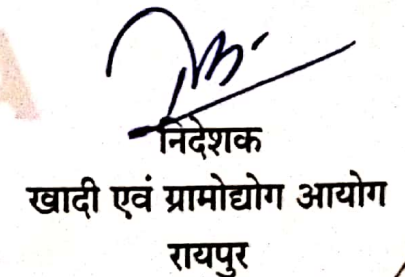 निदेशक
खादी एवं ग्रामोद्योग आयोग
रायपुर